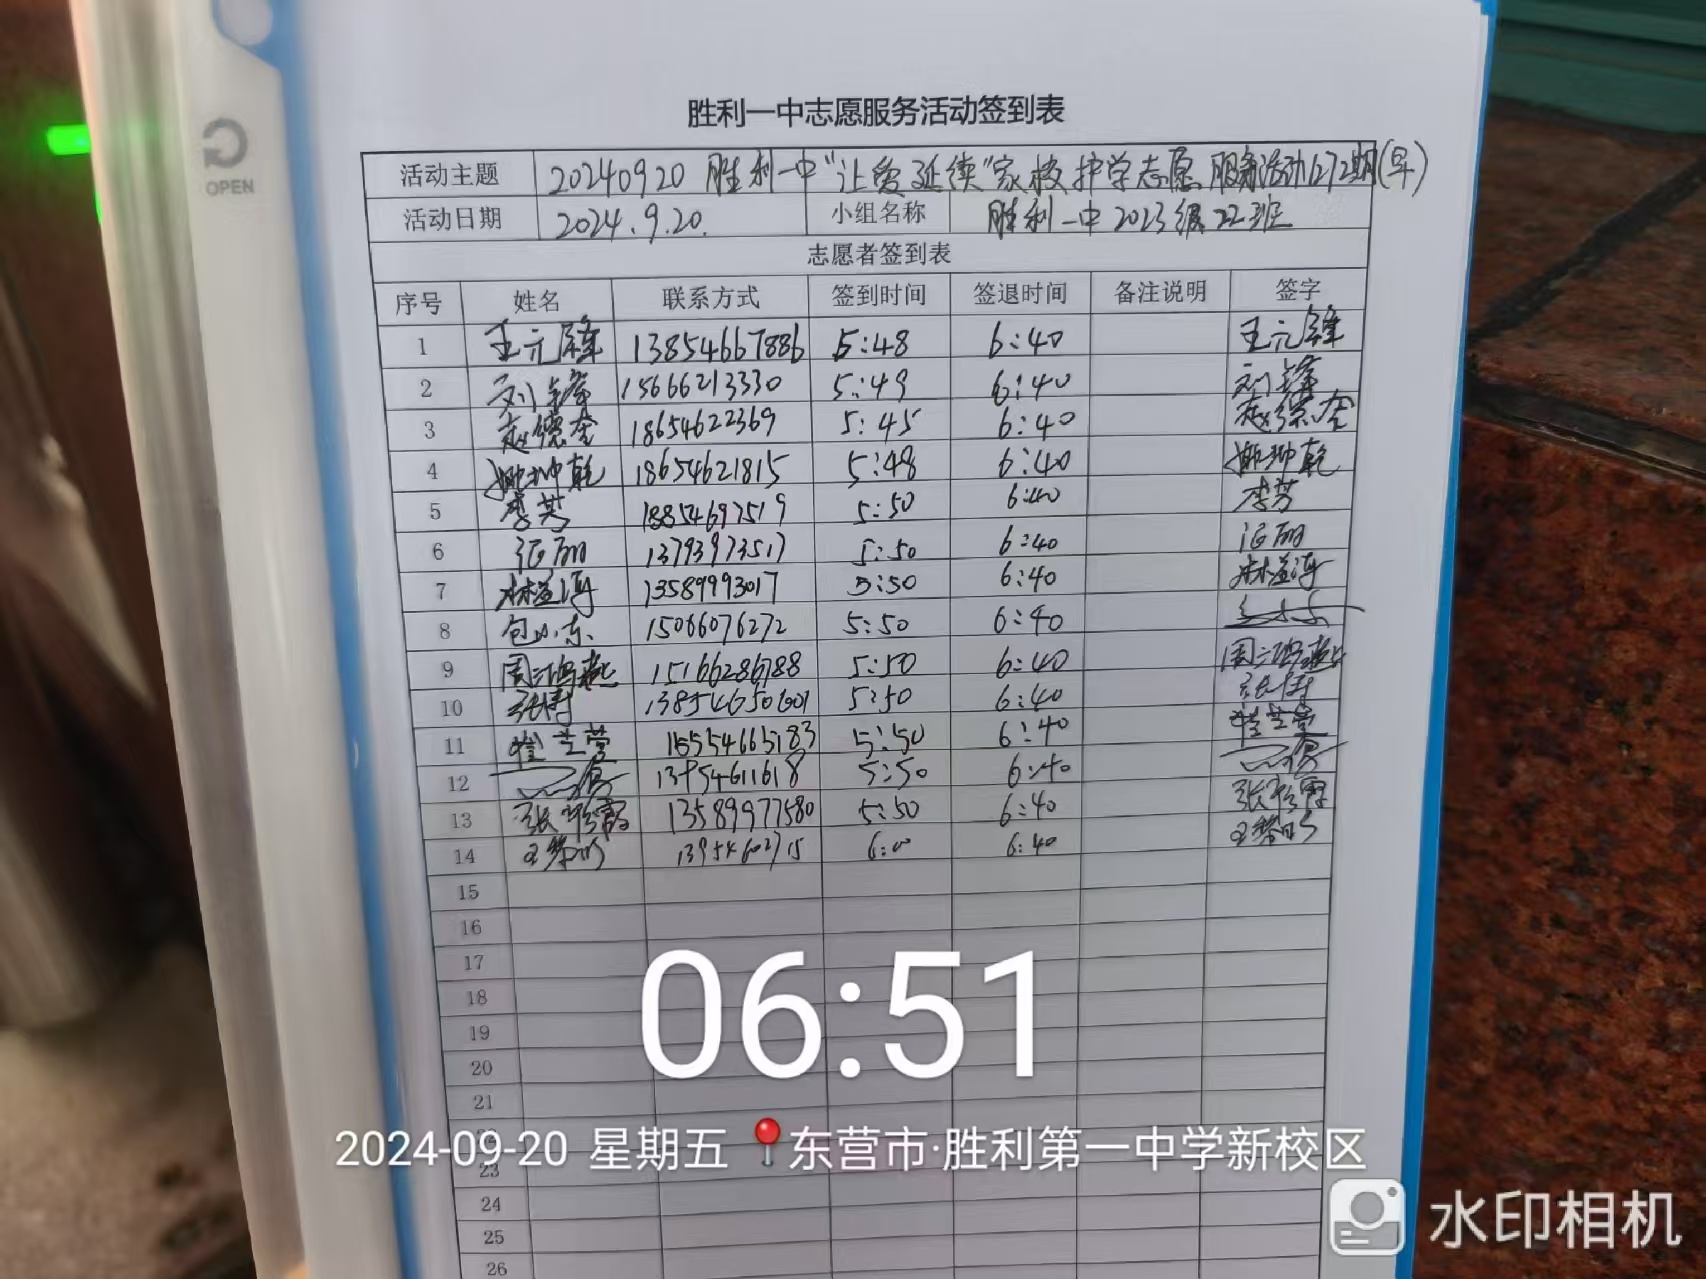 OPEN
胜利一中志愿服务活动签到表
活动主题 20240920 胜利一中“让爱延续”家校护学志愿服务活动272期(早)
活动日期 2024.9.20. 小组名称 胜利一中2023级22班
志愿者签到表
序号 姓名 联系方式 签到时间 签退时间 备注说明 签字
1 王元锋 13854667886 5:48 6:40 王元锋
2 刘锋 15666213330 5:49 6:40 刘锋
3 赵德奎 18654622369 5:45 6:40 赵德奎
4 坤乾 18654621815 5:48 6:40 坤乾
5 李芳 18854697519 5:50 6:40 李芳
6 张丽 13793973517 5:50 6:40 张丽
7 林益海 13589993017 5:50 6:40 林益海
8 包山东 15066076272 5:50 6:40
9 周鸿燕 15166286788 5:50 6:40 周鸿燕
10 张博 5:50 6:40 张博
11 崔兰萱 5:50 6:40 崔兰萱
12 5:50 6:40
13 张 霞 13589977580 5:50 6:40 张 霞
14 6:00 6:40
15
16
17
18
19
20
21
23
24
25
26
06:51
2024-09-20 星期五 东营市·胜利第一中学新校区
水印相机